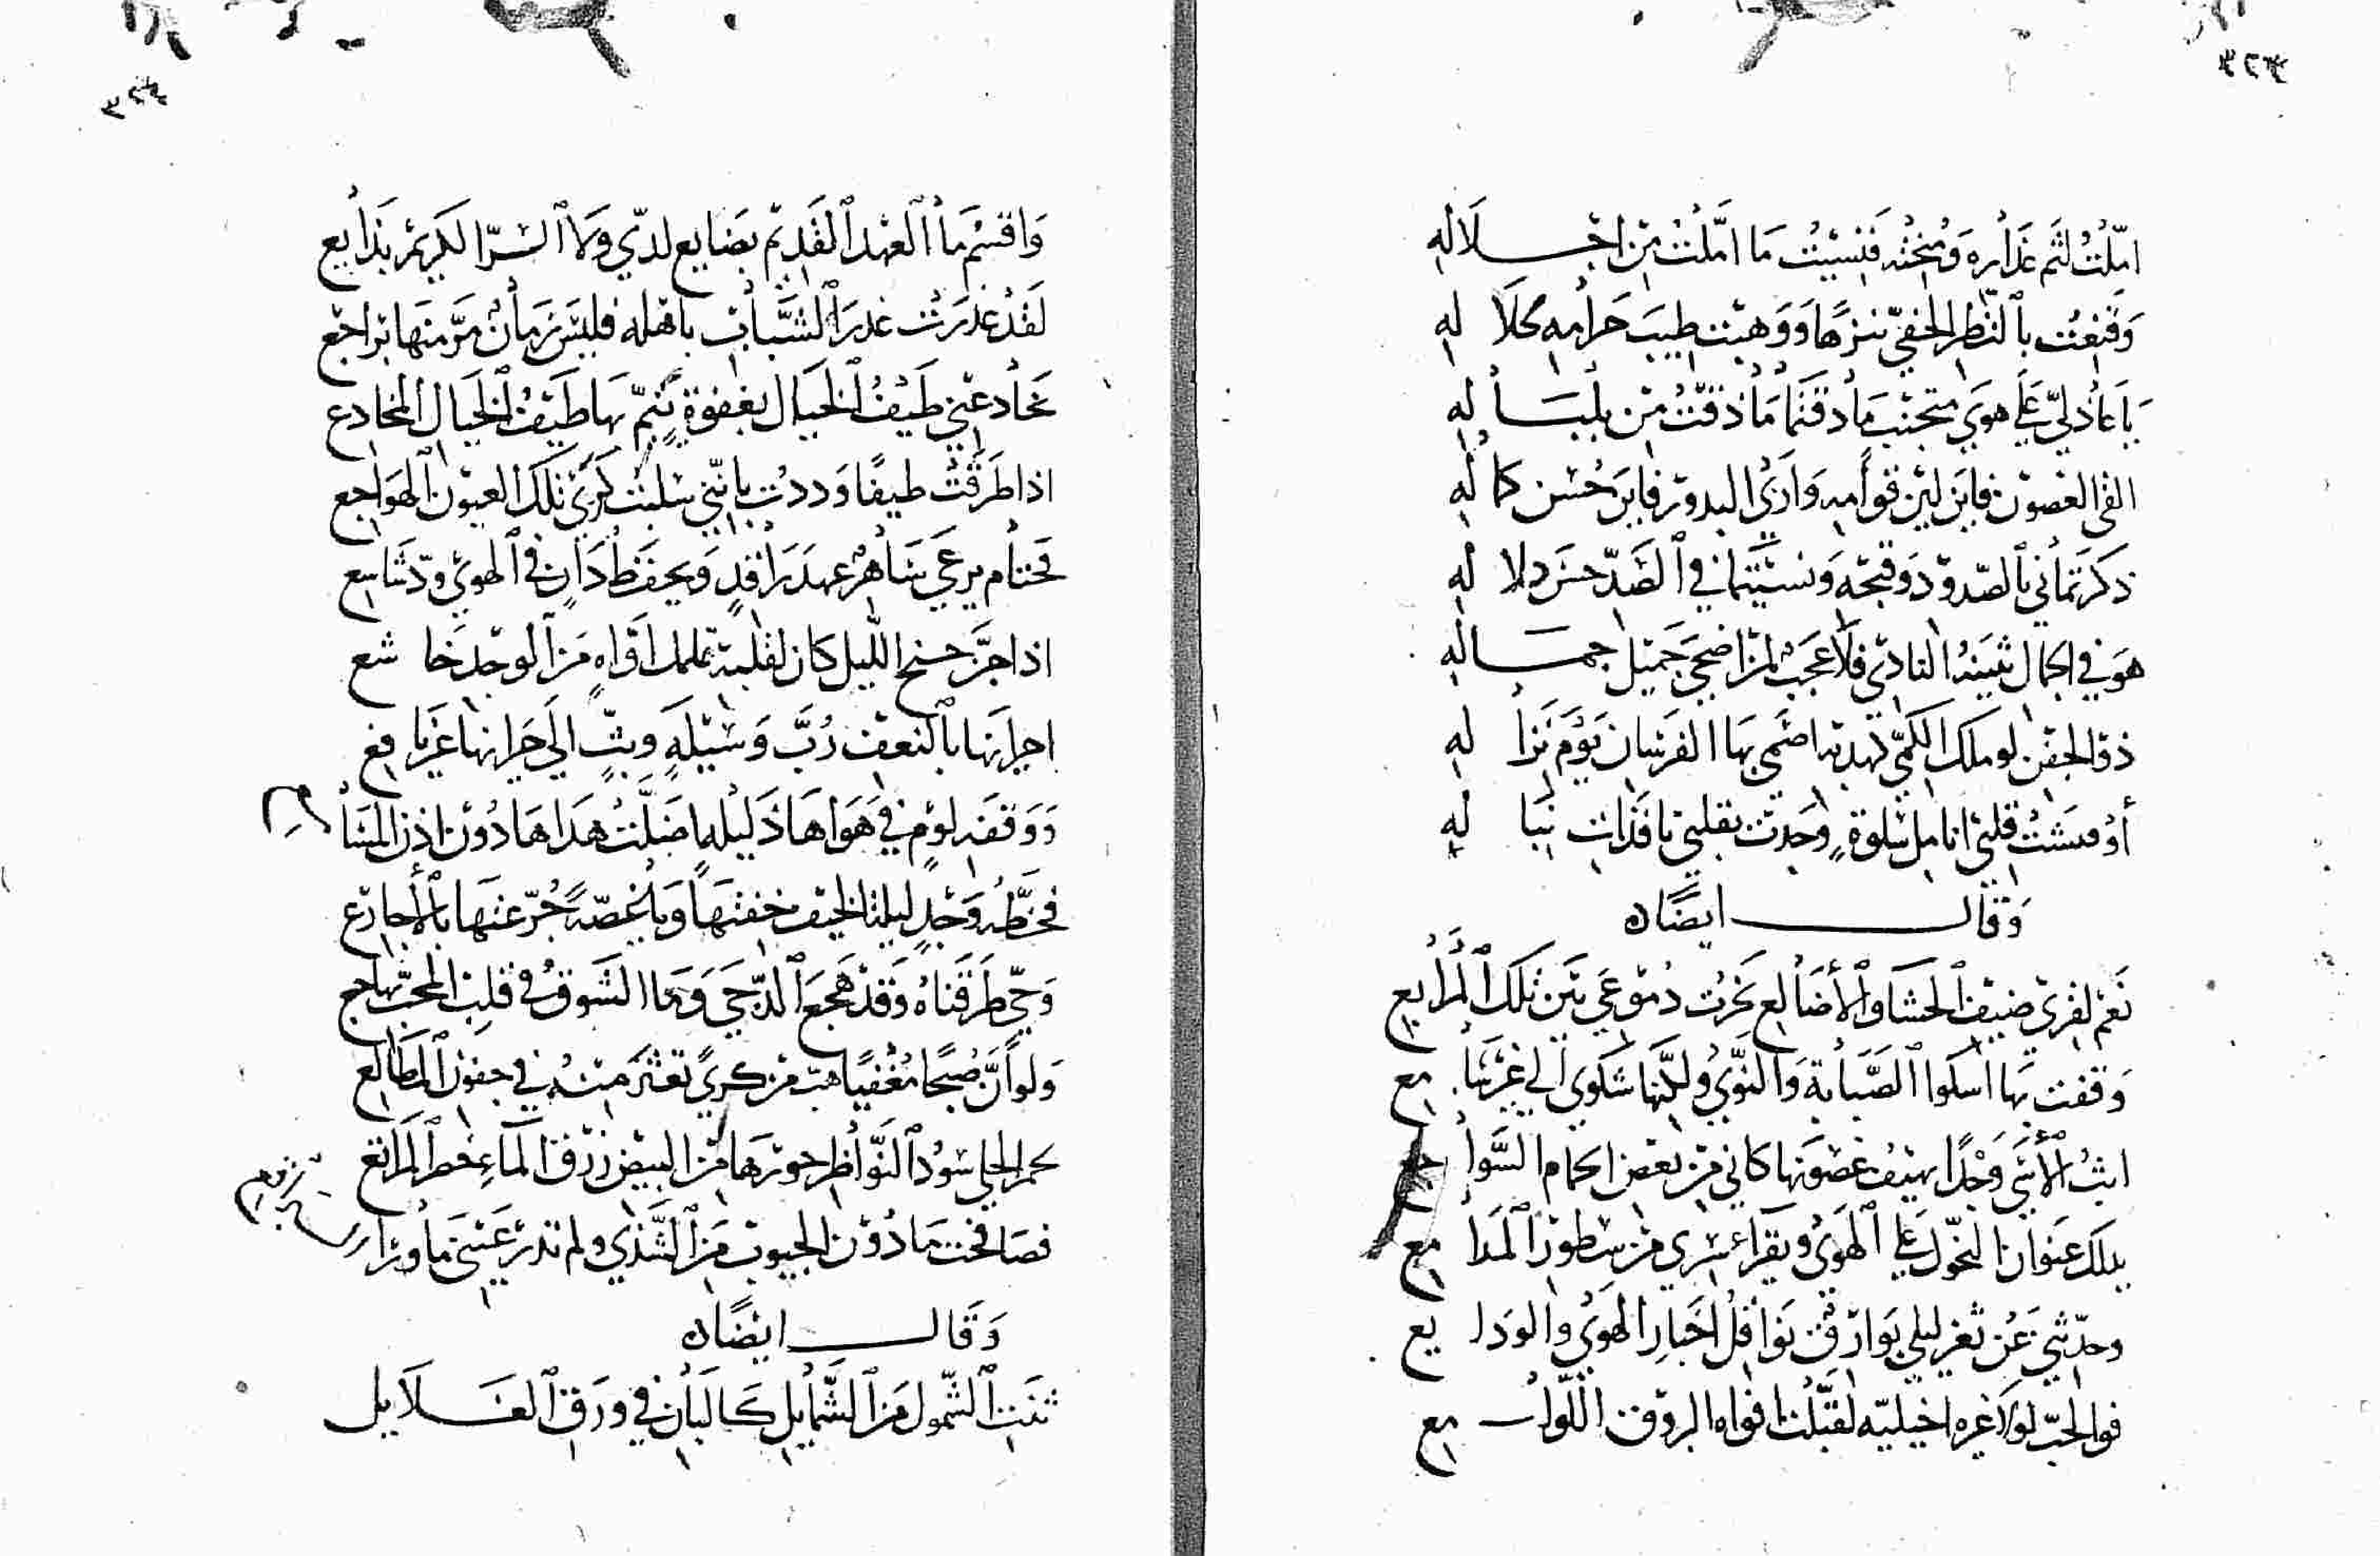 امّلتُ لثم عذاره ومنحته فنسيتُ ما امّلت من اجلاله
وقنعت بالنظر الخفيّ تنزها ووهبت طيب حرامه لحلاله
يا عاذليّ علي هوي متجنب ما دقتما ما ذقت من بلباله
القى الغصون فاين لين قوامه وارى البدور فاين حسن كماله
ذكرتماني بالصدود وقبحه ونسيتما في الصّدّ حسن دلاله
هو في الجمال بثينه النادي فلا عجب لمن اضحي جميل جماله
ذو الجفن لو ملك الكميّ اضمي بها الفرسان يوم نزاله
أو مسّت قلبي انامل سلوة وجدت بقلبي نافذات نباله
وقال ايضًا ه
نعم لقرى ضيف الحشا والأضالع نحرت دموعي بين تلك المرابع
وقفت بها اسكوا الصّبابة والنّوي ولكنها شكوي الي غير سامع
ابث الأسى وجدًا بهيف غصونها كاني من بعض الحمام السّواجع
يدلك عنوان النحول على الهوى ويقراء سري من سطور المدامع
وحدّثني عن ثغر ليلي بوارق نوافل اخبار الهوي والودايع
فوالحبّ لولا غيره اخيليّه لقبّلت افواه البروق اللّوامع
واقسم ما العهد القديم بضايع لديّ ولا السّرّ الكريم بذايع
لقد غدرت غدر الشباب باهله فليس زمان مرّ منها براجع
تخادعني طيف الخيال بغفوة ينمّ بها طيف الخيال المخادع
اذا طرقت طيفًا وددت بانّني سلبت كرى تلك العيون الهواجع
فحتام يرعي ساهر عهد راقد ويحفظ دان في الهوي ودّ شاسع
اذا جنّ جنح الليل كان لقلبه تململ اوّاه من الوجد خاشع
اجيرانها بالنعف ربّ وسيلة وبثّ الي جيرانها غير نافع
ووقفه لوم في هواها دليله اضلّت هداها دون اذن المسامع
وجد ليلة الخيف خفتها ويا غصّه جرّ عنها بالأجارع
وحيّ طرقناه وقد هجع الدّجي وما الشوق في قلب المحبّ بهاجع
ولو انّ صبحًا مغفيًا هبّ من كريً تعثر منه في جفون المطالع
بحمر الحلي سود النّواظر حورها من البيض زرق الماء خضر المراتع
فصافحت ما دون الجيوب من الشّذي ولم تدر عنّي ما وراء
وقال ايضًا ه
ثنت الشّمول من الشّمايل كالبان في ورق الغلايل